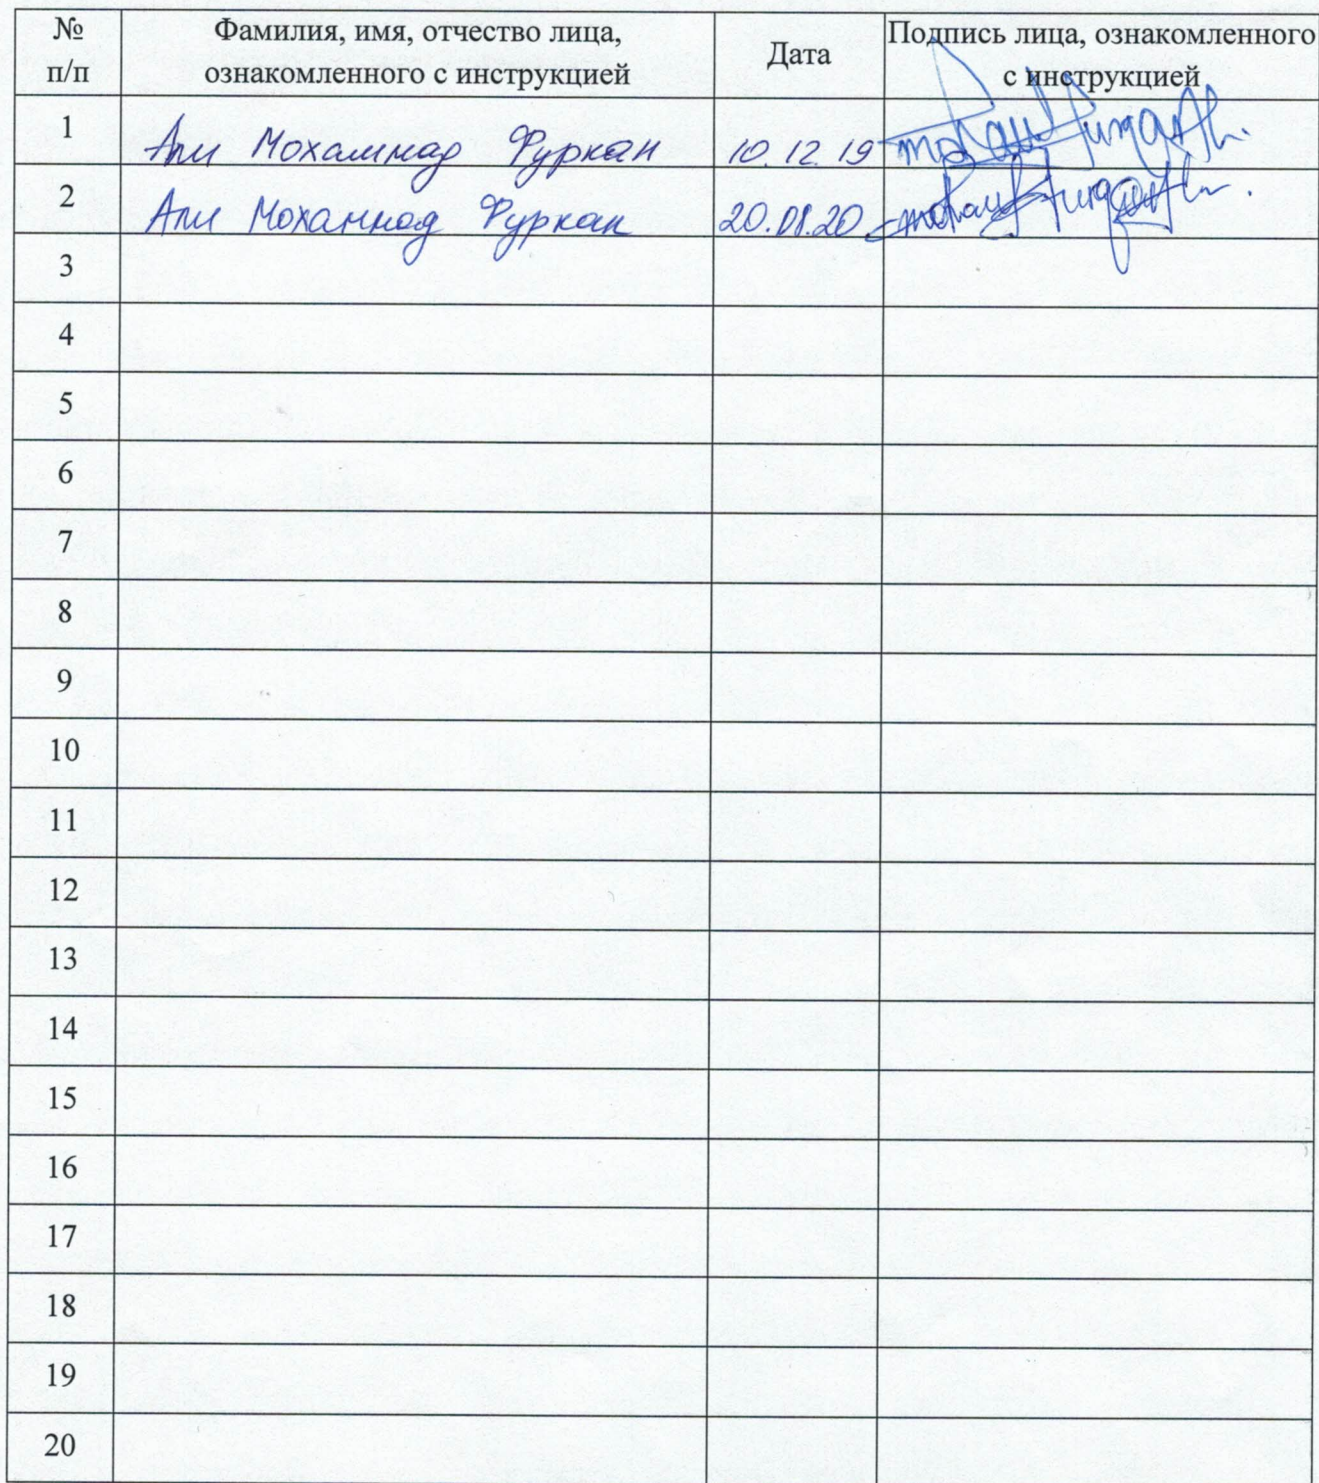 № п/п Фамилия, имя, отчество лица, ознакомленного с инструкцией Дата Подпись лица, ознакомленного с инструкцией
1 Али Мохаммад Фуркан 10.12.19
2 Али Мохаммад Фуркан 20.01.20
3
4
5
6
7
8
9
10
11
12
13
14
15
16
17
18
19
20